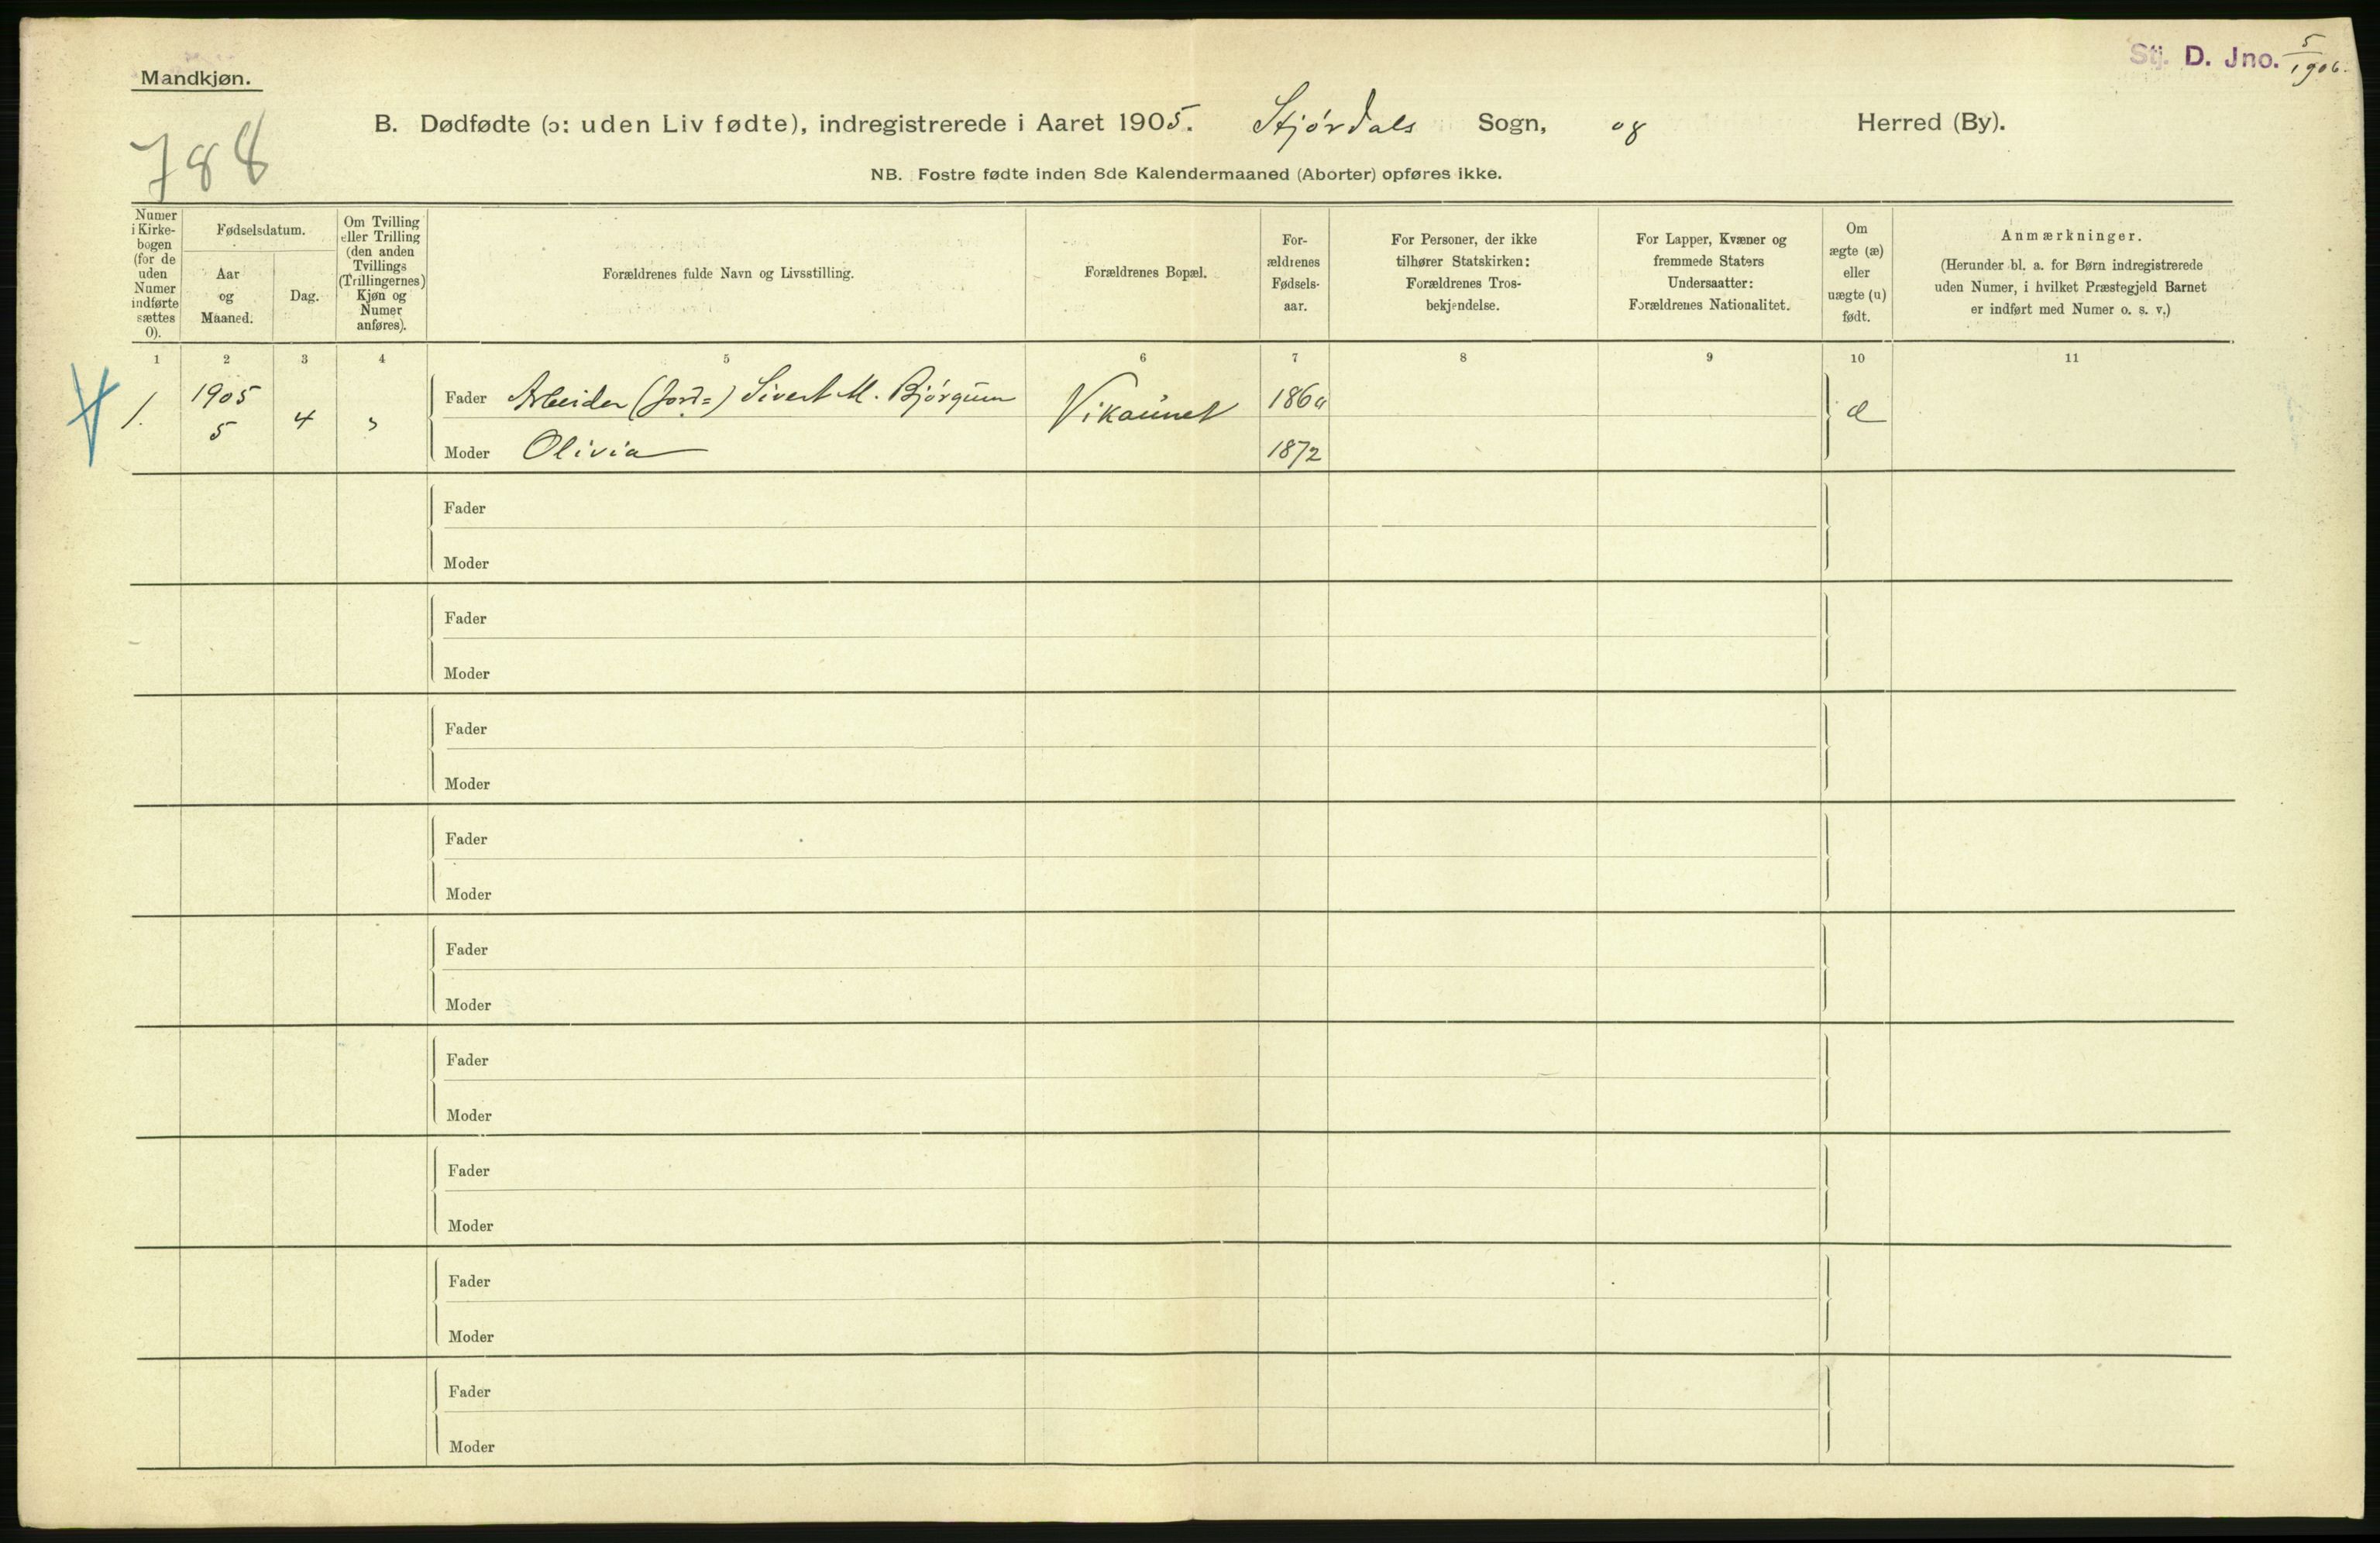 Mandkjøn.
Stj. D. Jno. 5/1906.
788
B. Dødfødte (ɔ: uden Liv fødte), indregistrerede i Aaret 1905. Stjørdals Sogn, og Herred (By).
NB. Fostre fødte inden 8de Kalendermaaned (Aborter) opføres ikke.
Numer
i Kirke-
bogen
(for de
uden
Numer
indførte
sættes
0).
Fødselsdatum.
Aar
og
Maaned.
Dag.
Om Tvilling
eller Trilling
(den anden
Tvillings
(Trillingernes)
Kjøn og
Numer
anføres).
Forældrenes fulde Navn og Livsstilling.
Forældrenes Bopæl.
For-
ældrenes
Fødsels-
aar.
For Personer, der ikke
tilhører Statskirken:
Forældrenes Tros-
bekjendelse.
For Lapper, Kvæner og
fremmede Staters
Undersaatter:
Forældrenes Nationalitet.
Om
ægte (æ)
eller
uægte (u)
født.
Anmærkninger.
(Herunder bl. a. for Børn indregistrerede
uden Numer, i hvilket Præstegjeld Barnet
er indført med Numer o. s. v.)
1 2 3 4 5 6 7 8 9 10 11
1. 1905 5 4 "
Fader Arbeider (Jord=) Sivert M. Bjørgum Vikaunet æ
Moder Olivia 1872
Fader
Moder
Fader
Moder
Fader
Moder
Fader
Moder
Fader
Moder
Fader
Moder
Fader
Moder
Fader
Moder
Fader
Moder